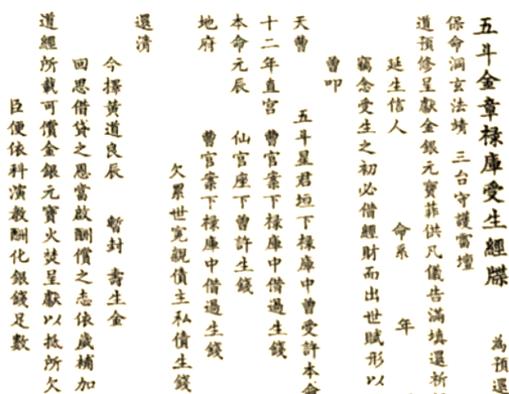 五斗金章祿庫受生經牒 為預還
保命洞玄法靖 三台守護雷壇
道預修呈獻金銀元寶菲供凡儀告滿填還祈
延生信人 命系 年
竊念受生之初必借經財而出世賦形以
曹叩
天曹 五斗星君垣下祿庫中曾受許本命
十二年直宮 曹官案下祿庫中借過生錢
本命元辰 仙官座下曾許生錢
地府 曹官案下祿庫中借過生錢
欠累世冤親債主私債生錢
還清
今擇黃道良辰 暫封 壽生金
回思借貸之恩當啟酬償之志依歲補加
道經所載可償金銀元寶火焚呈獻以抵所欠
臣便依科演教酬化銀錢足數